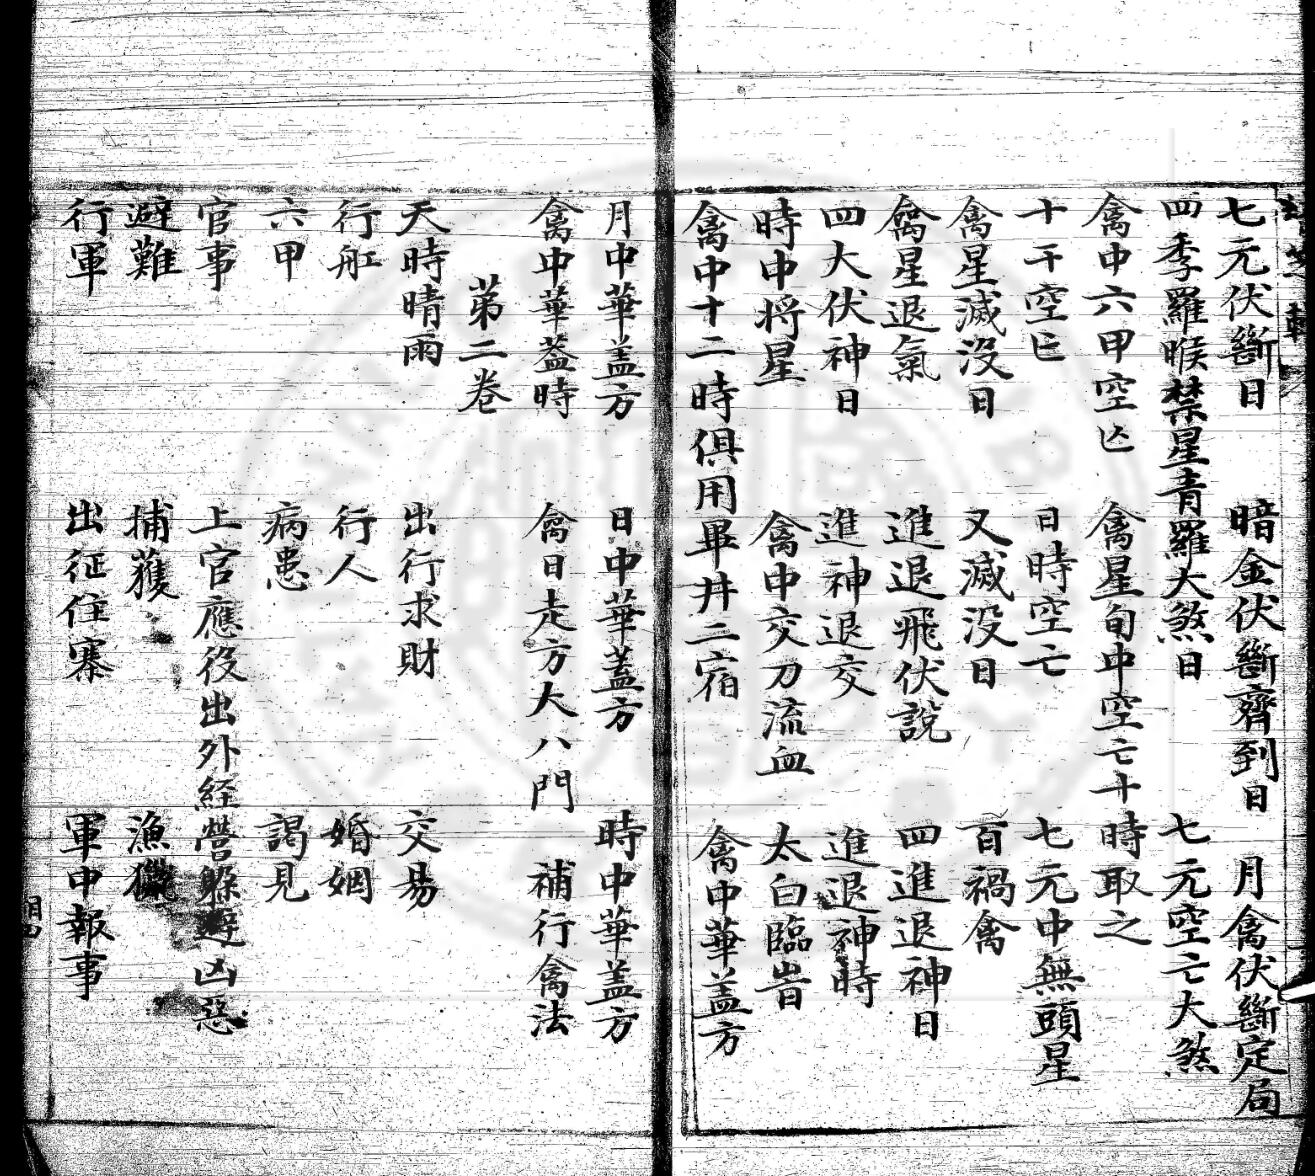 七元伏斷日　暗金伏斷齊到日　月禽伏斷定局
四季羅睺禁星青羅大煞日　七元空亡大煞
禽中六甲空亡　禽星旬中空亡十時取之
十干空亡　日時空亡　七元中無頭星
禽星滅沒日　又滅没日　百禍禽
禽星退氣　進退飛伏説　四進退神日
四大伏神日　進神退交　進退神時
時中将星　禽中交刀流血　太白臨旹
禽中十二時俱用畢井二宿　禽中華盖方
月中華盖方　日中華盖方　時中華盖方
禽中華葢時　禽日走方大八門　補行禽法
苐二卷
天時晴雨　出行求財　交易
行舡　行人　婚姻
六甲　病患　謁見
官事　上官應役出外経營躲避凶惡
避難　捕獲　漁獵
行軍　出征住寨　軍中報事